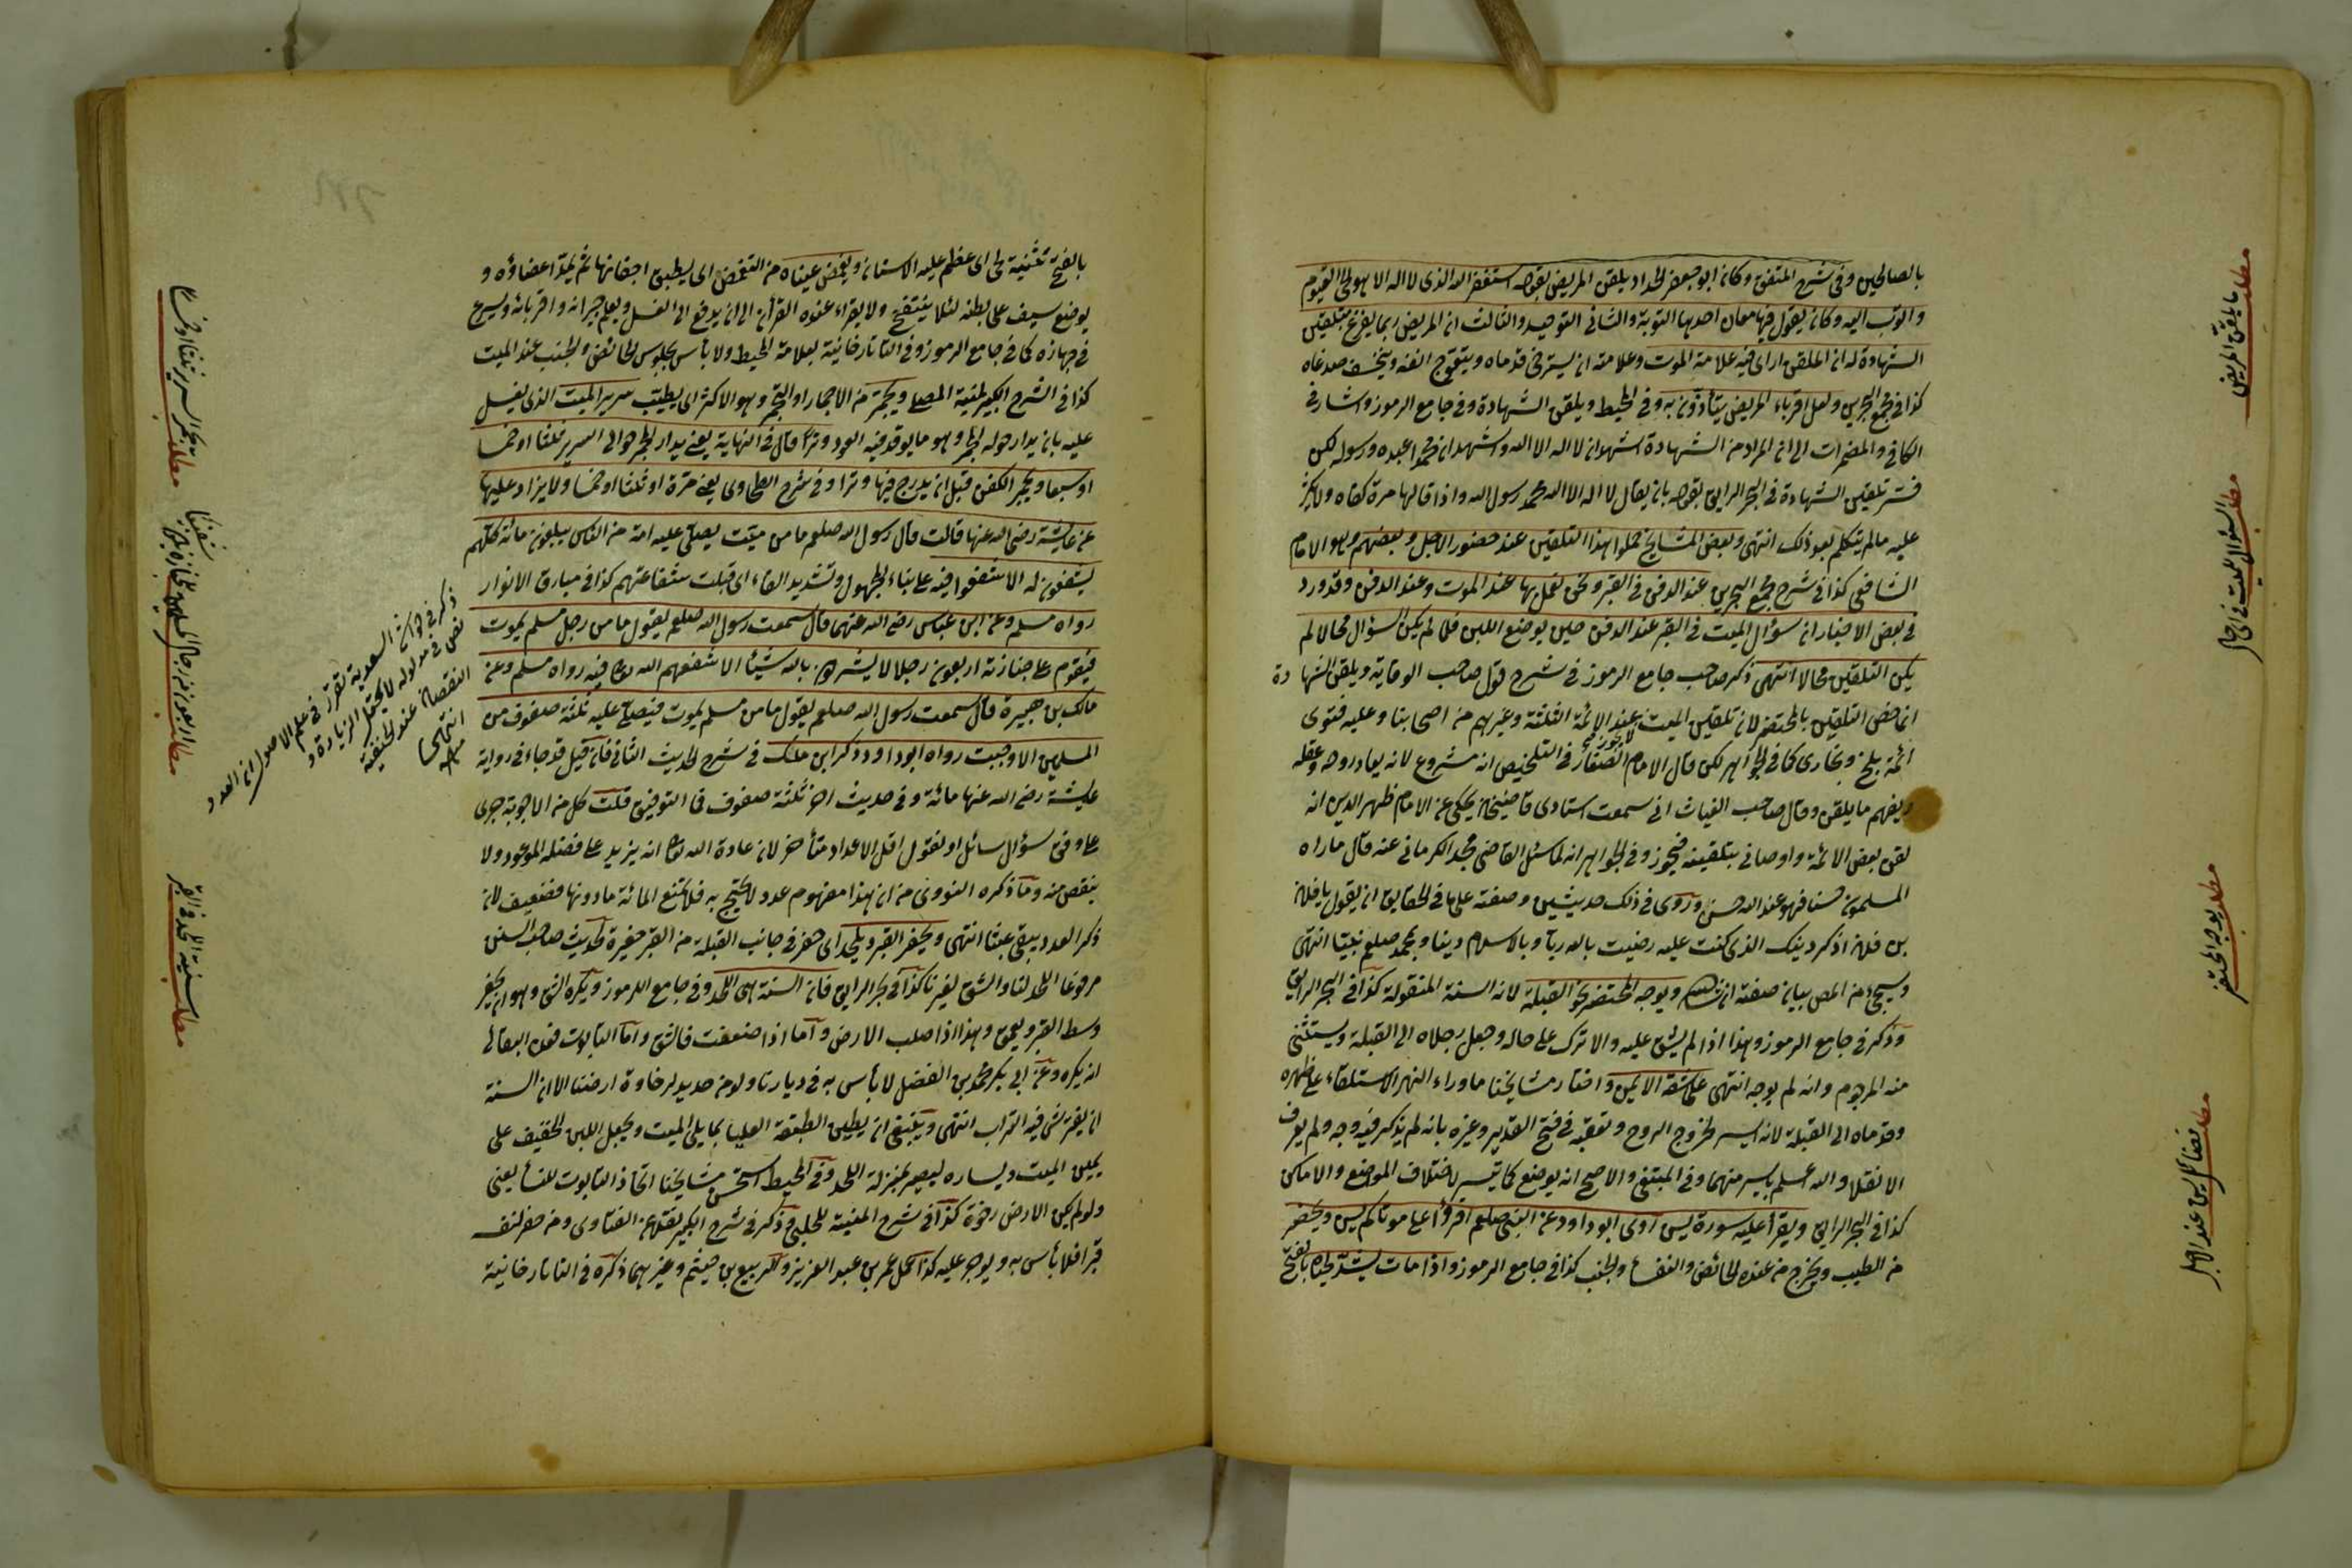 بالصالحين وفى شرح المتفق وكان ابو جعفر الحداد يلقن المريض بقوله استغفر الله الذى لا اله الا هو الحى القيوم
واتوب اليه وكان يقول فيها معان احدها التوبة والثانى التوحيد والثالث ان المريض ربما يفزع بتلقين
الشهادة له ان الملقن اراى فيه علامة الموت وعلامته ان يسترخى قدماه ويتعوج انفه وينخسف صدغاه
كذا فى مجمع البحرين ولعل اقرباء المريض يتأذون به وفى المحيط ويلقن الشهادة وفى جامع الرموز واشار فى
الكافى والمضمرات الى ان المراد من الشهادة اشهد ان لا اله الا الله واشهد ان محمدا عبده ورسوله لكن
فسر تلقين الشهادة فى البحر الرايق بقوله بان يقال لا اله الا الله محمد رسول الله واذا قالها مرة كفاه ولا يكثر
عليه مالم يتكلم بعد ذلك انتهى وبعض المشايخ حملوا هذا التلقين عند حضور الاجل وبعضهم وهو الامام
الشافعى كذا فى شرح مجمع البحرين عند الدفن فى القبر ونحن نعمل بها عند الموت وعند الدفن وقد ورد
فى بعض الاخبار ان سؤال الميت فى القبر عند الدفن حين يوضع اللبن فلما لم يكن السؤال محالا لم
يكن التلقين محالا انتهى ذكر صاحب جامع الرموز فى شرح قول صاحب الوقاية ويلقن الشهادة
انما خص التلقين بالمحتضر لان تلقين الميت لا يجوز عند الائمة الثلثة وغيرهم من اصحابنا وعليه فتوى
ائمة بلخ وبخارى كما فى الجواهر لكن قال الامام الصفار فى التلخيص انه مشروع لانه يعاد روحه وعقله
ويفهم ما يلقن وقال صاحب الغياث انى سمعت استادى قاضيخان يحكى عن الامام ظهير الدين انه
لقن بعض الائمة واوصانى بتلقينه فيجوز وفى الجواهر انه لما سئل القاضى مجد الكرمانى عنه قال ما راه
المسلمون حسنا فهو عند الله حسن وروى فى ذلك حديثين وصفته على ما فى الحقايق ان يقول يا فلان
بن فلان اذكر دينك الذى كنت عليه رضيت بالله ربا وبالاسلام دينا وبمحمد صلعم نبيا انتهى
وسيجئ من المص بيان صفته ان شاء الله ويوجه المحتضر نحو القبلة لانه السنة المنقولة كذا فى البحر الرايق
وذكر فى جامع الرموز وهذا اذا لم يشق عليه والا ترك على حاله وجعل رجلاه الى القبلة ويستثنى
منه المرجوم وانه لم يوجه انتهى على شقه الايمن واختار مشايخنا ما وراء النهر الاستلقاء على ظهره
وقدماه الى القبلة لانه ايسر لخروج الروح وتعقبه فى فتح القدير وغيره بانه لم يذكر فيه وجه ولم يعرف
الا نقلا والله اعلم بايسر منهما وفى المبتغى والاصح انه يوضع كما تيسر لاختلاف المواضع والاماكن
كذا فى البحر الرايق ويقرأ عليه سورة يس روى ابو داود عن النبى صلعم اقرؤا على موتاكم يس ويحضر
من الطيب ويخرج من عنده الحائض والنفساء والجنب كذا فى جامع الرموز واذا مات يشد لحياه بالفتح
مطلب ما يلقن المريض
مطلب السؤال للميت فى اى حال
مطلب يوجه المحتضر
مطلب فضائل يس عند الاجل
بالفتح تثنية لحى اى عظم عليه الاسنان ويغمض عيناه من التغمض اى يطبق اجفانها ثم يمد اعضاؤه و
يوضع سيف على بطنه لئلا ينتفخ ولا يقراء عنده القرأن الى ان يدفع الى الغسل ويعلم جيرانه واقربائه ويسرع
فى جهازه كما فى جامع الرموز وفى التاتارخانية بعلامة المحيط ولا بأس بجلوس الحائض والجنب عند الميت
كذا فى الشرح الكبير لمنية المصلى ويجمر من الاجمار او التجمر وهو الاكثر اى يطيب سرير الميت الذى يغسل
عليه بان يدار حوله المجمر وهو ما يوقد فيه العود وترا قال فى النهاية يعنى يدار المجمر حوالى السرير ثلثا او خمسا
او سبعا ويجمر الكفن قبل ان يدرج فيها وترا وفى شرح الطحاوى يعنى مرة او ثلثا او خمسا ولا يزاد عليها
عن عايشة رضى الله عنها قالت قال رسول الله صلعم ما من ميت يصلى عليه امة من الناس يبلغون مائة كلهم
يشفعون له الا شفعوا فيه على بناء المجهول وتشديد الفاء اى قبلت شفاعتهم كذا فى مبارق الانوار
رواه مسلم وعن ابن عباس رضى الله عنهما قال سمعت رسول الله صلعم يقول ما من رجل مسلم يموت
فيقوم على جنازته اربعون رجلا لا يشركون بالله شيئا الا شفعهم الله تعالى فيه رواه مسلم وعن
مالك بن هبيرة قال سمعت رسول الله صلعم يقول ما من مسلم يموت فيصلى عليه ثلثة صفوف من
المسلمين الا وجبت رواه ابو داود وذكر ابن ملك فى شرح الحديث الثانى فان قيل قد جاء فى رواية
عايشة رضى الله عنها مائة وفى حديث اخر ثلثة صفوف فما التوفيق قلت كل من الاجوبة جرى
على وفق سؤال سائل او نقول اقل الاعداد متأخر لان عادة الله تعالى ان يزيد على فضله الموعود ولا
ينقص منه وما ذكره النووى من ان هذا مفهوم عدد لا يحتج به فلا يمتنع المائة ما دونها فضعيف لان
ذكر العدد يبقى عبثا انتهى ويحفر القبر ويلحد اى حفر فى جانب القبلة من القبر حفيرة لحديث صاحب السنن
مرفوعا اللحد لنا والشق لغيرنا كذا فى بحر الرايق فان السنة هى اللحد وفى جامع الرموز ويكره الشق وهو ان يحفر
وسط القبر ويعمق وهذا اذا صلب الارض واما اذا ضعفت فالشق واما التابوت فعن البقالى
انه يكره وعن ابى بكر محمد بن الفضل لا بأس به فى ديارنا ولو من حديد لرخاوة ارضنا الا ان السنة
ان يفترش فيه التراب انتهى وينبغى ان يطين الطبقة العليا مما يلى الميت ويجعل اللبن الخفيف على
يمين الميت ويساره ليصير بمنزلة اللحد وفى المحيط استحسن مشايخنا اتخاذ التابوت للنسأ يعنى
ولو لم يكن الارض رخوة كذا فى شرح المنية للحلبى وذكر فى شرح الكبير نقلا عن الفتاوى ومن حفر لنفسه
قبرا فلا بأس به ويوجر عليه كذا عمل عمر بن عبد العزيز والربيع بن خيثم وغيرهما ذكره فى التاتارخانية
مطلب تجمر السرير ثلثا او خمسا
مطلب اربعون من رجال المسلمين للجنازة
شفعاء
مطلب سنية اللحد فى القبر
ذكر فى حواشى السعدية تقرر فى علم الاصول ان العدد
نص فى مدلوله لا يحتمل الزيادة و
النقصان عند الحنفية
انتهى